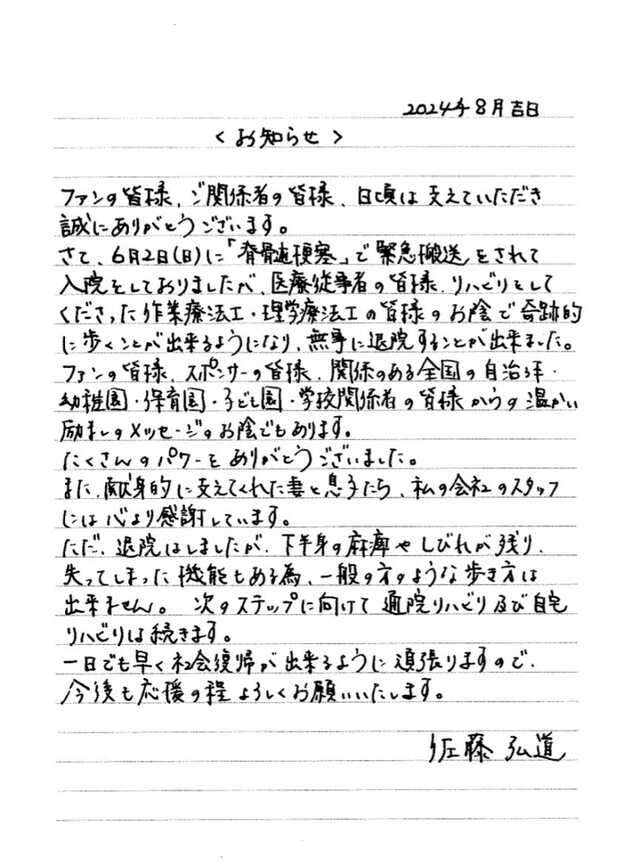 2024年8月吉日
<お知らせ>
ファンの皆様、ご関係者の皆様、日頃は支えていただき
誠にありがとうございます。
さて、6月2日(日)に「脊髄梗塞」で緊急搬送をされて
入院をしておりましたが、医療従事者の皆様、リハビリをして
くださった作業療法士・理学療法士の皆様のお陰で奇跡的
に歩くことが出来るようになり、無事に退院することが出来ました。
ファンの皆様、スポンサーの皆様、関係のある全国の自治体・
幼稚園・保育園・子ども園・学校関係者の皆様からの温かい
励ましのメッセージのお陰でもあります。
たくさんのパワーをありがとうございました。
また、献身的に支えてくれた妻と息子たち、私の会社のスタッフ
には心より感謝しています。
ただ、退院はしましたが、下半身の麻痺やしびれが残り、
失ってしまった機能もある為、一般の方のような歩き方は
出来ません。次のステップに向けて通院リハビリ及び自宅
リハビリは続きます。
一日でも早く社会復帰が出来るように頑張りますので、
今後も応援の程よろしくお願いいたします。
佐藤弘道